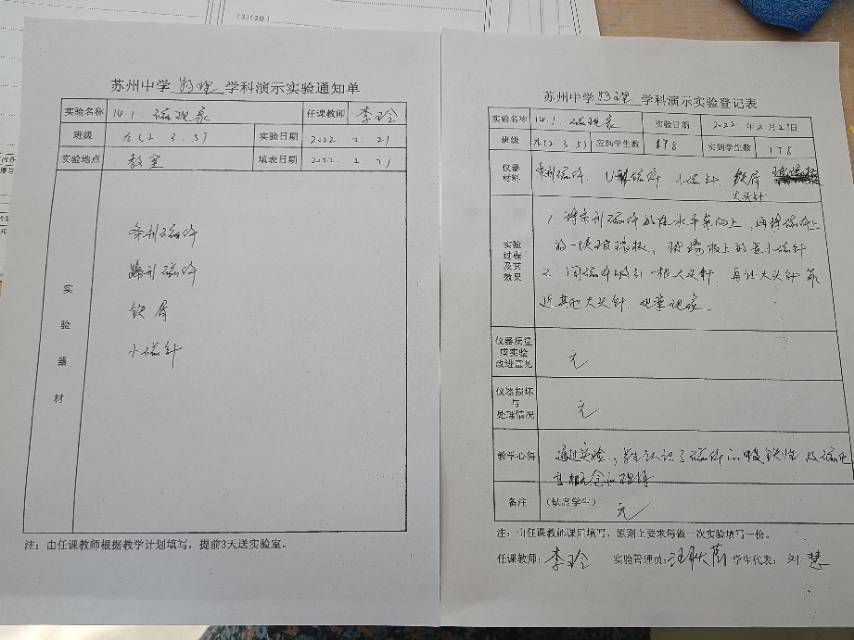 苏州中学 物理 学科演示实验通知单
实验名称 14.1 磁现象 任课教师 李玲
班级 九(2.3.5) 实验日期 2022.2.21
实验地点 教室 填表日期 2022.2.21
实验器材
条形磁体
蹄形磁体
铁屑
小磁针
注：由任课教师根据教学计划填写，提前3天送实验室。
苏州中学 物理 学科演示实验登记表
实验名称 14.1 磁现象 实验日期 2022年2月21日
班级 九(2.3.5) 应到学生数 178 实到学生数 178
仪器材料 条形磁体 U形磁体 小磁针 铁屑
大头针
实验过程及其效果
1、将条形磁体放在水平桌面上，再将磁体上
的一块玻璃板，玻璃板上放置小磁针
2、用磁体吸引一根大头针，再让大头针靠
近其他大头针，观察现象。
仪器质量或实验改进意见 无
仪器损坏与处理情况 无
教学心得 通过实验，学生认识了磁体的吸铁性及磁化
等概念的理解
备注 (缺席学生) 无
注：由任课教师课后填写，原则上要求每做一次实验填写一份。
任课教师：李玲 实验管理员：汪 学生代表：刘慧